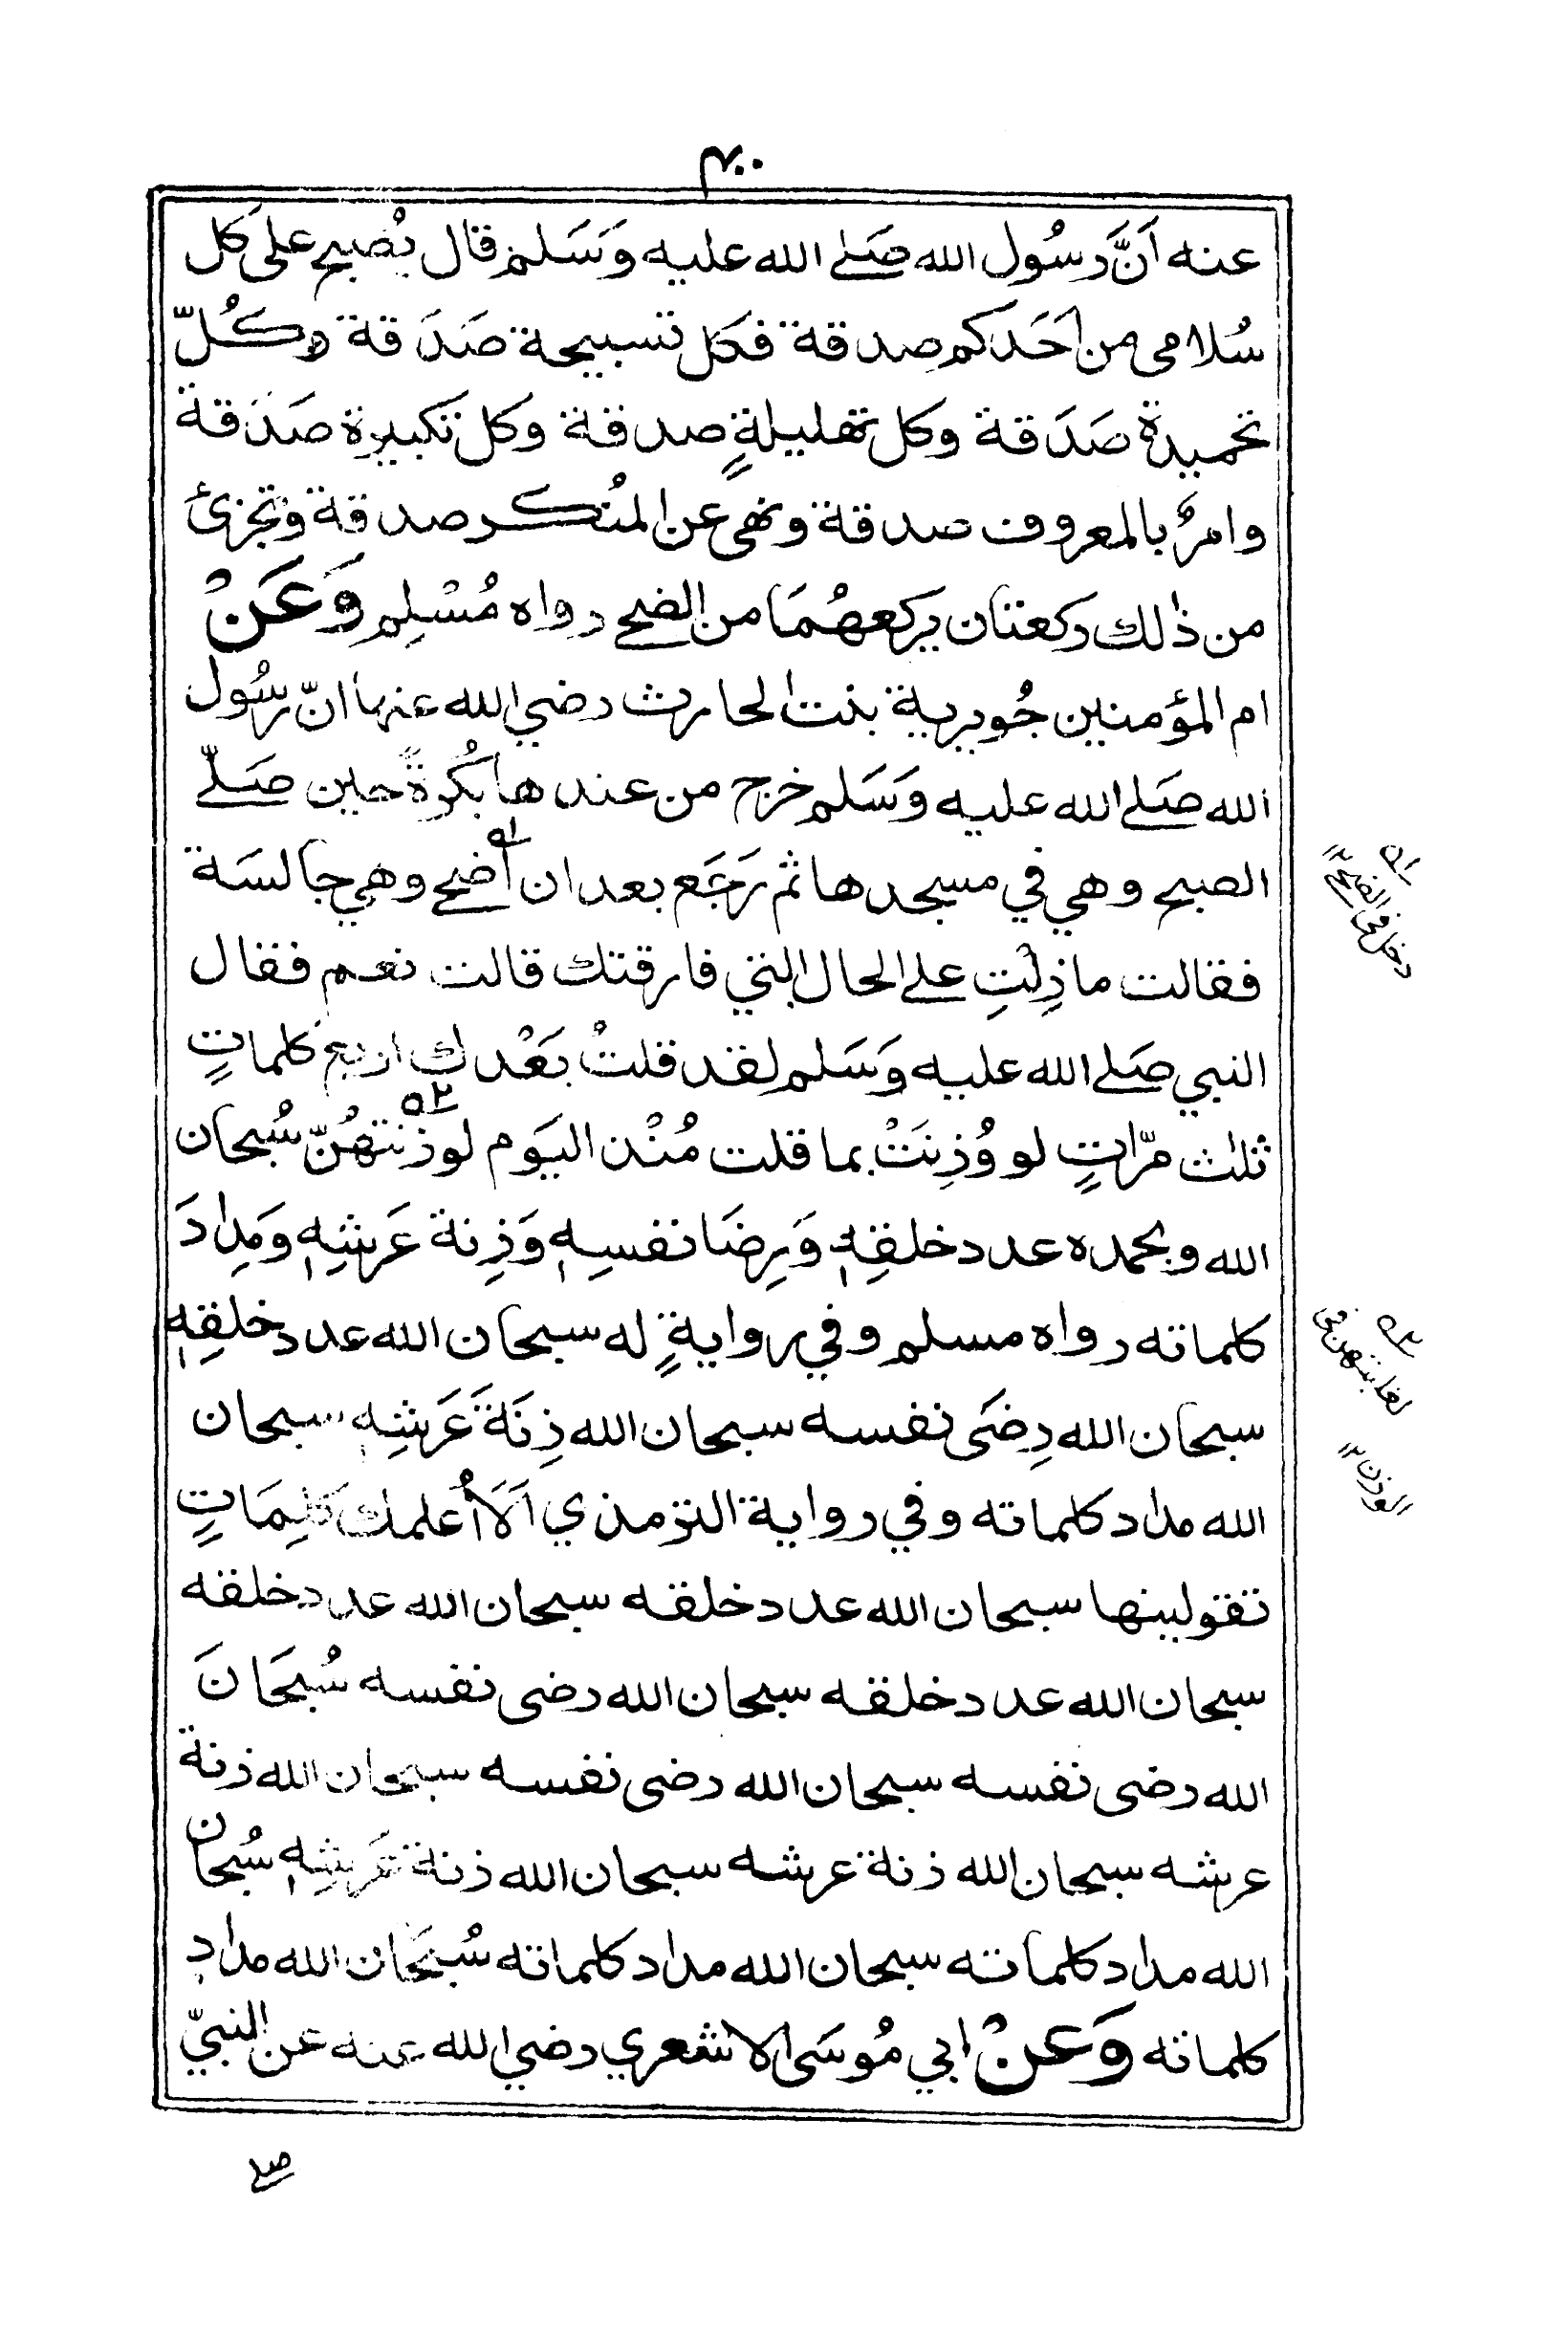 ٣٠٠
عنه اَنَّ رسُول الله صَلے الله عليه وَسَلم قال يُصبح على كل
سُلامى من اَحَدكم صدقة فكل تسبيحة صَدَقة وكُلّ
تحميدة صَدَقة وكل تهليلةٍ صدقة وكل تكبيرة صَدَقة
وامرٌ بالمعروف صدقة ونهى عن المُنكر صدقة وتجزئ
من ذٰلك ركعتان يركعهُمَا من الضحے رواه مُسْلِم وَعَنْ
ام المؤمنين جُويرية بنت الحارث رضي الله عنها انّ رسُول
الله صَلے الله عليه وَسَلم خرج من عندها بُكُرةً حين صَلّے
الصبح وهي في مسجدها ثم رَجَع بعد ان اَضحے وهي جالسَة
فقالت ما زِلْتِ علے الحال التي فارقتك قالت نعم فقال
النبي صَلے الله عليه وَسَلم لقد قلتُ بَعْدك اربع كلماتٍ
ثلٰث مرّاتٍ لو وُزِنَتْ بما قلت مُنْذ اليَوم لوزنتهُنّ سُبحان
الله وبحمده عدد خلقِهٖ وَرِضَا نفسِهٖ وَزِنة عَرشِهٖ وَمِدادَ
كلماته رواه مسلم وفي روايةٍ له سبحان الله عدد خلقِهٖ
سبحان الله رِضَى نفسه سبحان الله زِنَةَ عَرشِهٖ سبحان
الله مداد كلماته وفي رواية الترمذي اَلَا اُعلمك كلِمَاتٍ
تقولينها سبحان الله عدد خلقه سبحان الله عدد خلقه
سبحان الله عدد خلقه سبحان الله رضى نفسه سُبحَانَ
الله رضى نفسه سبحان الله رضى نفسه سبحان الله زنة
عرشه سبحان الله زنة عرشه سبحان الله زنة عَرشِهٖ سُبحان
الله مداد كلماته سبحان الله مداد كلماته سُبحَان الله مداد
كلماته وَعنْ ابي مُوسَى الاشعري رضي الله عنه عن النبيّ
صلے
دخل في الضحے ١٢
الوزن ١٢